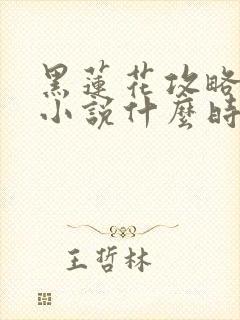 黑蓮花攻略
小說什麼時
王哲林